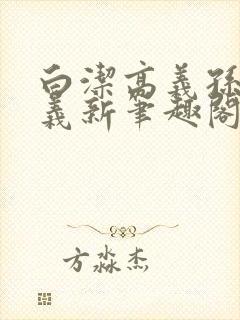 白潔高義孫
義新筆趣閣
方淼杰